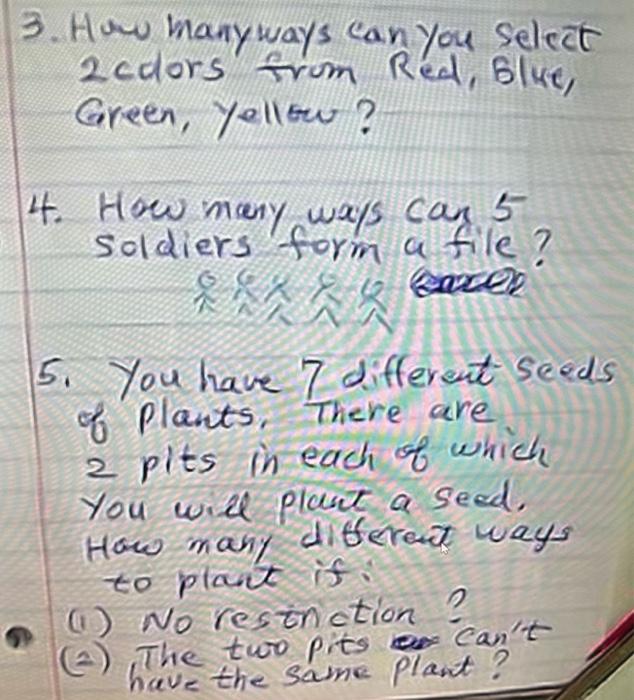 3. How many ways can you select
2 colors from Red, Blue,
Green, Yellow?
4. How many ways can 5
soldiers form a file?
5. You have 7 different seeds
of plants. There are
2 pits in each of which
you will plant a seed.
How many different ways
to plant if:
(1) No restriction?
(2) The two pits can't
have the same plant?